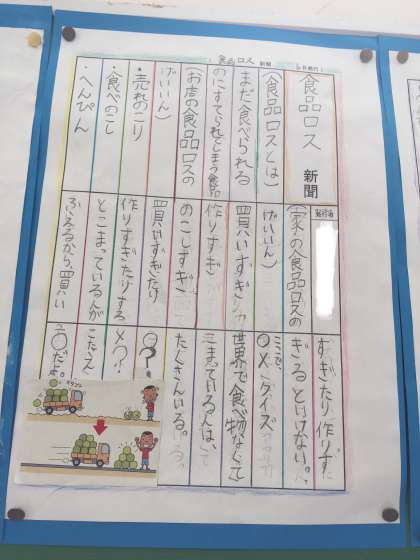 食品ロス 新聞
食品ロス 新聞
(食品ロスとは)
まだ食べられる
のにすてられてしまう食品
(お店の食品ロスの
げいいん)
・売れのこり
・食べのこし
・へんぴん
発行者
(家の食品ロスの
げいいん)
買いすぎ
作りすぎ
のこしすぎ
買いすぎたり
作りすぎたりする
とこまっている人が
ふえるから、買い
すぎたり作りす
ぎるといけない。
ここで、
〇×クイズ
世界で食べ物がなくて
こまっている人は、
たくさんいる。
〇?
×?
こたえ
〇だよ。